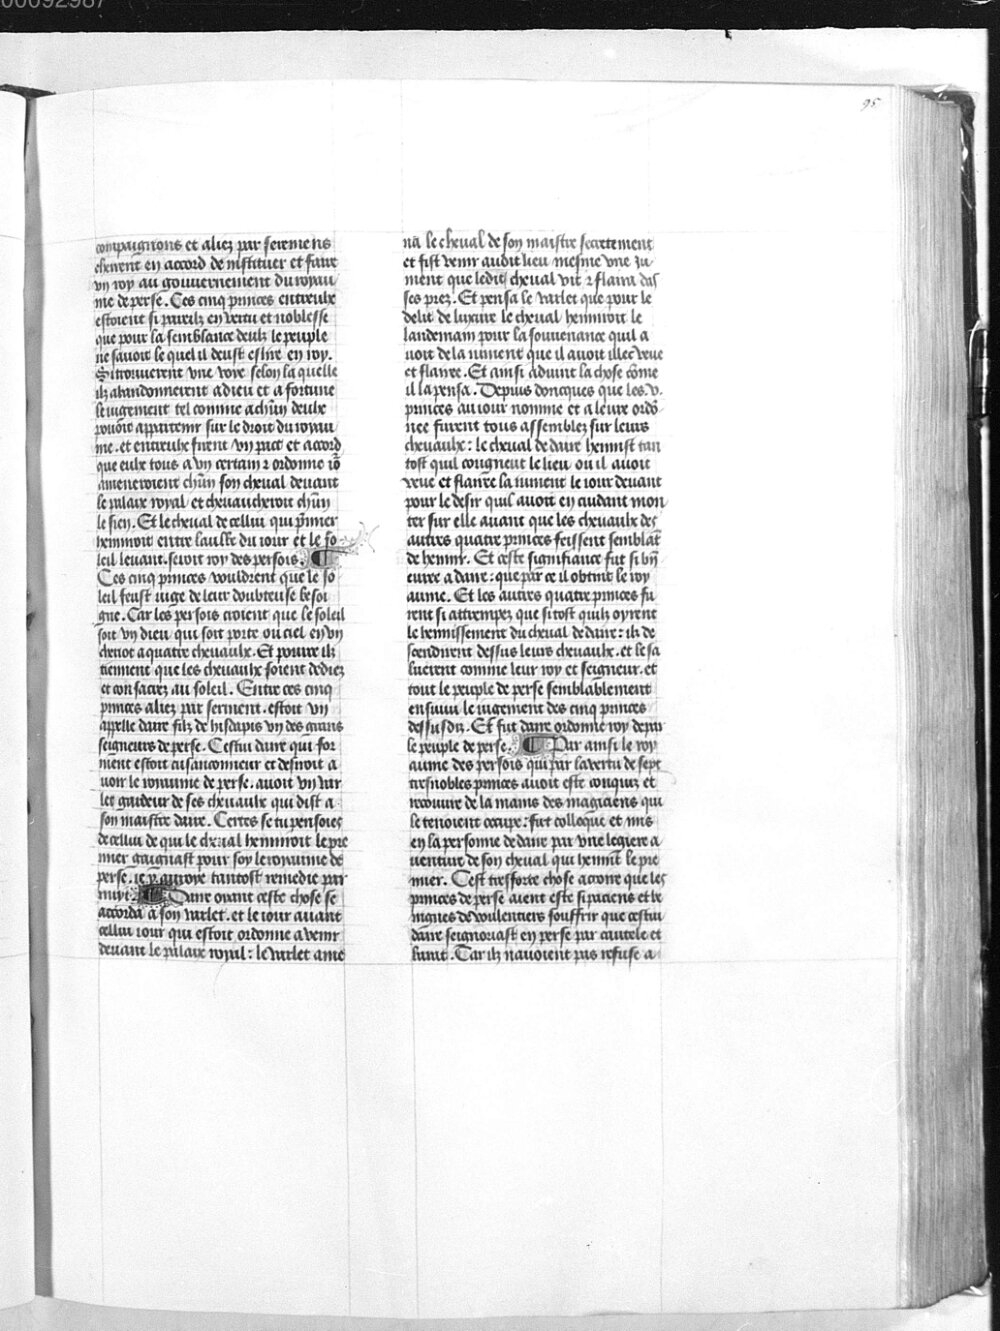 00092987
95
compaignons et aliez par seremens
cheurent en accord de instituer et faire
vn roy au gouuernement du royau
me de perse. Ces cinq princes entreulx
estoient si pareilz en vertu et noblesse
que pour la semblance deulx le peuple
ne sauoit le quel il deust eslire en roy.
Si trouuerent vne voye selon la quelle
ilz abandonnerent a dieu et a fortune
le iugement tel comme a chūn deulx
pouoit appartenir sur le droit du royau
me. et entreulx firent vn pact et accord
que eulx tous a vn certain ⁊ ordonne io
ameneroient chūn son cheual deuant
le palaix royal et cheuaucheroit chūn
le sien. Et le cheual de cellui qui p̄mier
henniroit entre laulbe du iour et le so
leil leuant. seroit roy des persois.
Ces cinq princes vouldrent que le so
leil feust iuge de leur doubteuse besoi
gne. Car les persois croient que le soleil
soit vn dieu qui soit porte ou ciel en vn
chariot a quatre cheuaulx. Et pource ilz
tiennent que les cheuaulx soient dediez
et consacrez au soleil. Entre ces cinq
princes aliez par serment. estoit vn
appelle daire filz de hisdapis vn des grans
seigneurs de perse. Cestui daire qui for
ment estoit cusanconneux et desiroit a
uoir le royaume de perse. auoit vn var
let gardeur de ses cheuaulx qui dist a
son maistre daire. Certes se tu pensoies
de cellui de qui le cheual henniroit le pre
mier gaignast pour soy le royaume de
perse. ie y auroye tantost remedie par
nuyt. Daire oyant ceste chose se
accorda a son varlet. et le iour auant
cellui iour qui estoit ordonne a venir
deuant le palaix royal: le varlet ame
na le cheual de son maistre secretement
et fist venir audit lieu mesme vne iu
ment que ledit cheual vit ⁊ flaira das
ses prez. Et pensa le varlet que pour le
delit de luxure le cheual henniroit le
landemain pour la souuenance quil a
uoit de la iument que il auoit illec veue
et flairee. Et ainsi aduint la chose cōme
il la pensa. Depuis doncques que les .v.
princes au iour nomme et a leure ordō
nee furent tous assemblez sur leurs
cheuaulx: le cheual de daire hennist tan
tost quil congneut le lieu ou il auoit
veue et flairee la iument le iour deuant
pour le desir quil auoit en cuidant mon
ter sur elle auant que les cheuaulx des
autres quatre princes feissent semblāt
de hennir. Et ceste signifiance fut si bn̄
euree a daire: que par ce il obtint le roy
aume. Et les autres quatre princes fu
rent si attrempez que si tost quilz oyrent
le hennissement du cheual de daire: ilz de
scendirent dessus leurs cheuaulx. et le sa
luerent comme leur roy et seigneur. et
tout le peuple de perse semblablement
ensuiui le iugement des cinq princes
dessusdiz. Et fut daire ordonne roy depar
le peuple de perse. Par ainsi le roy
aume des persois qui par la vertu de sept
tresnobles princes auoit este conquiz et
recouure de la mains des magiciens qui
le tenoient occupe: fut colloque et mis
en la personne de daire par vne legiere a
uenture de son cheual qui hennit le pre
mier. Cest tresforte chose a croire que les
princes de perse aient este si paciens et be
nignes de voulentiers souffrir que cestui
daire seignoriast en perse par cautele et
barat. Car ilz nauoient pas refuse a